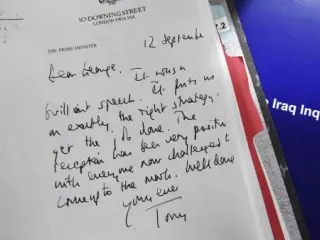 10 DOWNING STREET
LONDON SW1A 2AA
THE PRIME MINISTER
12 September
Dear George,
It was a
brilliant speech. It puts us
on exactly the right strategy
get the job done. The
reception has been very positive
with everyone now challenged to
come up to the mark. Well done
Yours ever
Tony
.2
Iraq Inq